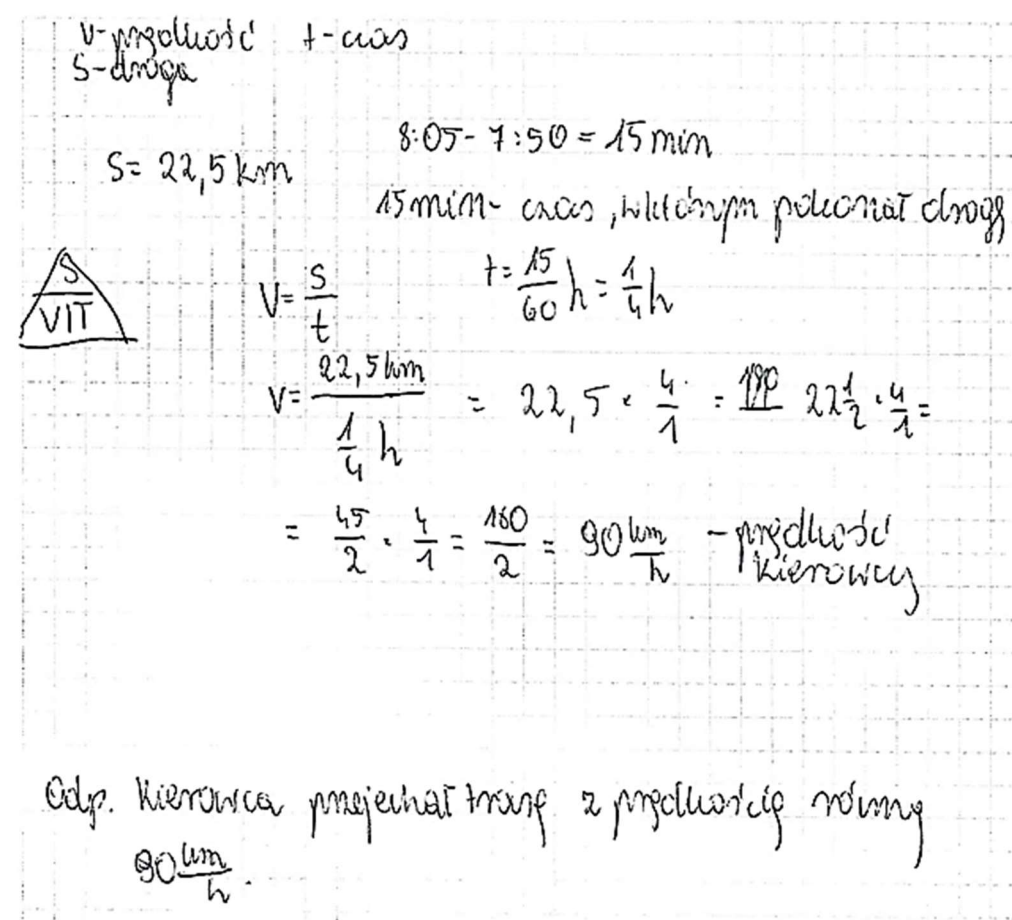 v-prędkość t-czas
s-droga
8:05-7:50=15 min
S=22,5 km
15 min- czas, w którym pokonał drogę
S
VIT
V=\frac{s}{t}
t=\frac{15}{60}h=\frac{1}{4}h
V=\frac{22,5 km}{\frac{1}{4}h} = 22,5 · \frac{4}{1} = 22\frac{1}{2} · \frac{4}{1} =
= \frac{45}{2} · \frac{4}{1} = \frac{180}{2} = 90\frac{km}{h} - prędkość
kierowcy
Odp. Kierowca przejechał trasę z prędkością równą
90\frac{km}{h}.